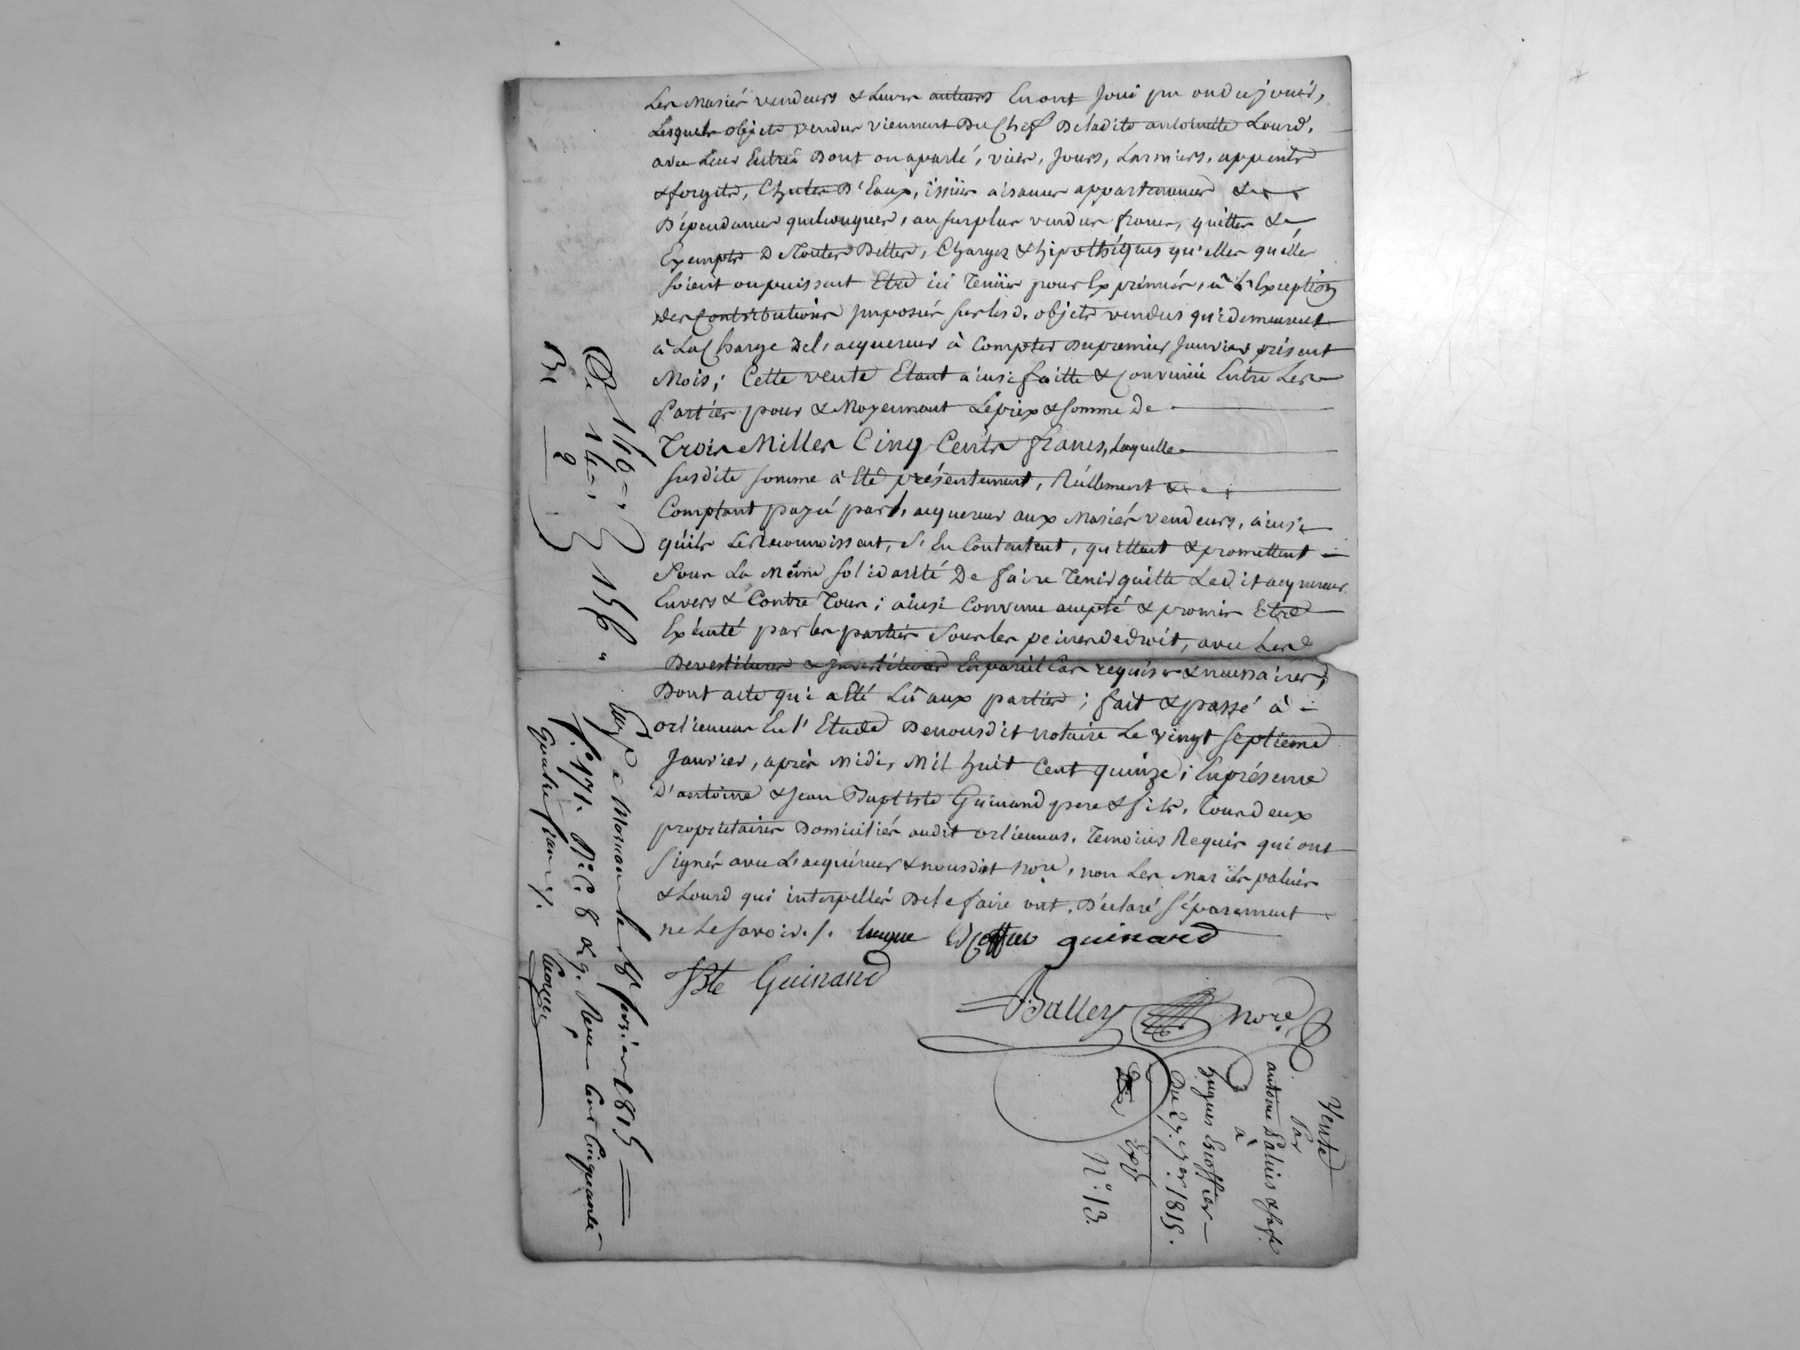 Les Mariés vendeurs & Leurs auteurs En ont Joui pu ou dû jouir,
Lesquels objets vendus viennent Du Chef De ladite antoinette Lourd,
avec Leur Entrée Dont on a parlé, vües, Jours, Larmiers, appents
& forgets, Chutes D'Eaux, issües aisances appartenances &
Dépendances quelconques, au surplus vendus francs, quittes &
Exempts De Toutes Dettes, Charges & hipothéques qu'elles quelles
soient ou puissent Etre ici Tenües pour Exprimées, à L'Exception
des Contributions Imposées sur lesd. objets vendus qui demeurent
à La Charge De l'acquereur à Compter Du premier Janvier présent
Mois; Cette vente Etant ainsi faitte & Convenüe Entre Les
Parties pour & Moyennant Le prix & somme De
Trois Milles Cinq Cents francs, laquelle
susdite somme à Eté présentement, Réellement &
Comptant payé par L'acquereur aux Mariés vendeurs, ainsi
qu'ils Le Reconnoissent, s'En Contentent, quittent & promettent
Sous La Même solidarité De faire Tenir quitte Ledit acquereur
Envers & Contre Tous; ainsi Convenu accepté & promis Etre
Exécuté par les parties Sous les peines de droit, avec Les
Devestitures & Investitures En pareil Cas requises & necessaires,
Dont acte qui a Eté Lû aux parties; fait & passé à
orliennas En l'Etude De nousdit notaire Le vingt septieme
Janvier, après Midi, Mil huit Cent quinze; En présence
D'antoine & Jean Baptiste Guinand pere & fils, Tous deux
propriétaires Domiciliés audit orliennas, Temoins Requis qui ont
signés avec L'acquéreur & nousdit nore, non Les Mariés palais
& Lourd qui interpellés De le faire ont Déclaré séparement
ne Le savoir./. hugue guinard
JBte Guinand
Balley nore
Vente
Par
antoine
à
hugues Escoffier
Du 27. Jer. 1815.
Exp
N.° 13.
150
14
2
156
Engé à Mornant le fevrier 1815
f.° 171. R.° C. 8 & 9. Reçu Cent Cinquante
quatre francs